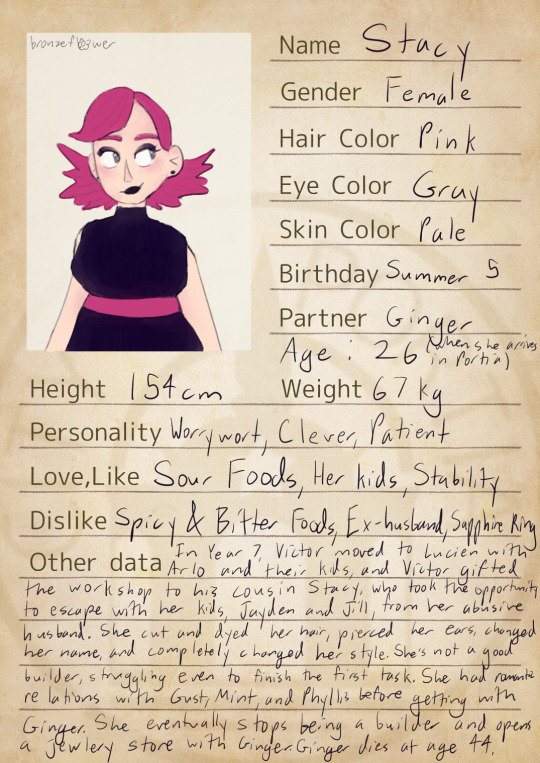 bronzeflower
Name Stacy
Gender Female
Hair Color Pink
Eye Color Gray
Skin Color Pale
Birthday Summer 5
Partner Ginger
Age: 26 (when she arrives
in Portia)
Height 154cm
Weight 67 kg
Personality Worrywort, Clever, Patient
Love,Like Sour Foods, Her kids, Stability
Dislike Spicy & Bitter Foods, Ex-husband, Sapphire Ring
Other data In Year 7, Victor moved to Lucien with
Arlo and their kids, and Victor gifted
the workshop to his cousin Stacy, who took the opportunity
to escape with her kids, Jayden and Jill, from her abusive
husband. She cut and dyed her hair, pierced her ears, changed
her name, and completely changed her style. She's not a good
builder, struggling even to finish the first task. She had romantic
relations with Gust, Mint, and Phyllis before getting with
Ginger. She eventually stops being a builder and opens
a jewlery store with Ginger. Ginger dies at age 44.